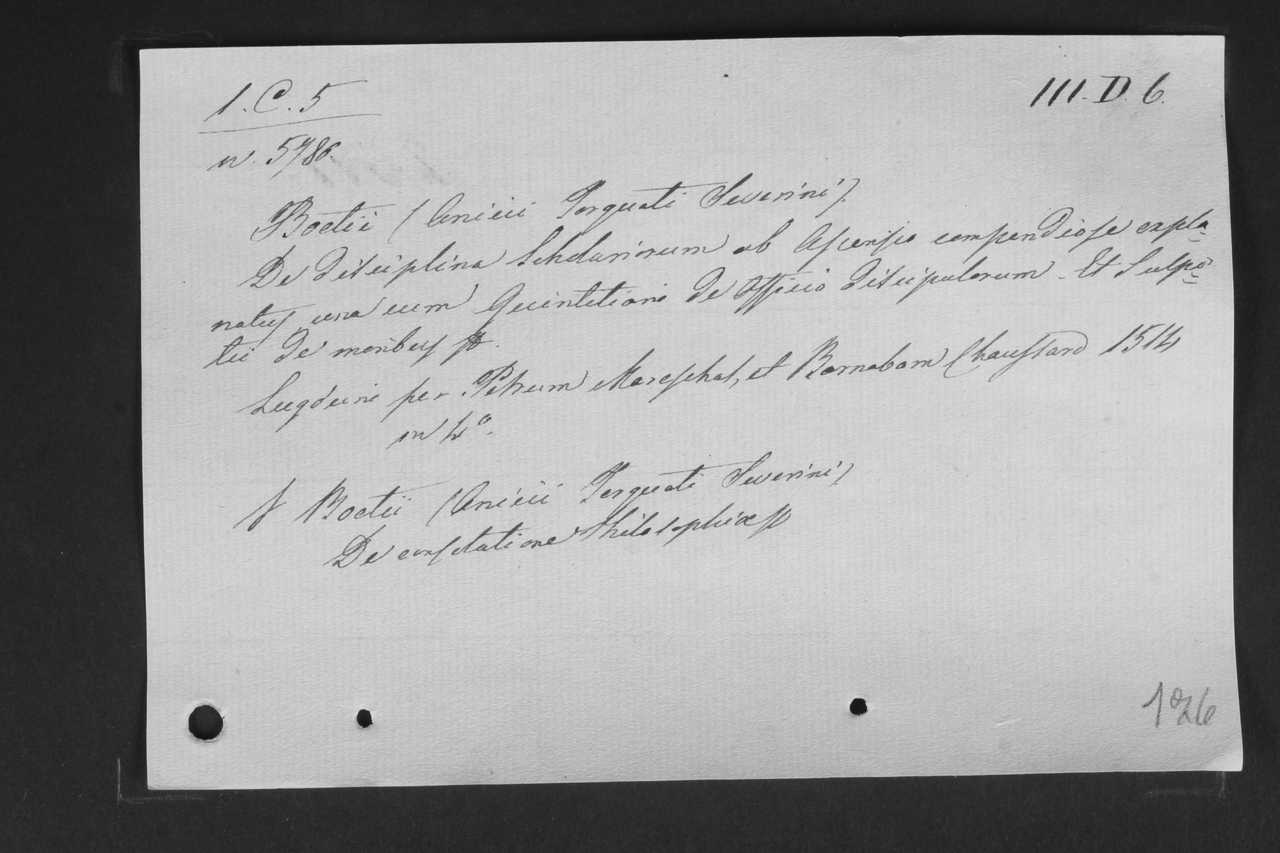 1. C. 5
III. D. 6.
n. 5786.
Boetii (Anicii Torquati Severini)
De disciplina Scholariorum ab Ascensio compendiose expla=
natus una cum Quintiliano de Officio discipulorum. Et Sulpi=
tii de moribus &.
Lugduni per Petrum Mareschal, et Barnabam Chaussard 1514
in 4°.
Boetii (Anicii Torquati Severini)
De consolatione Philosophiæ &